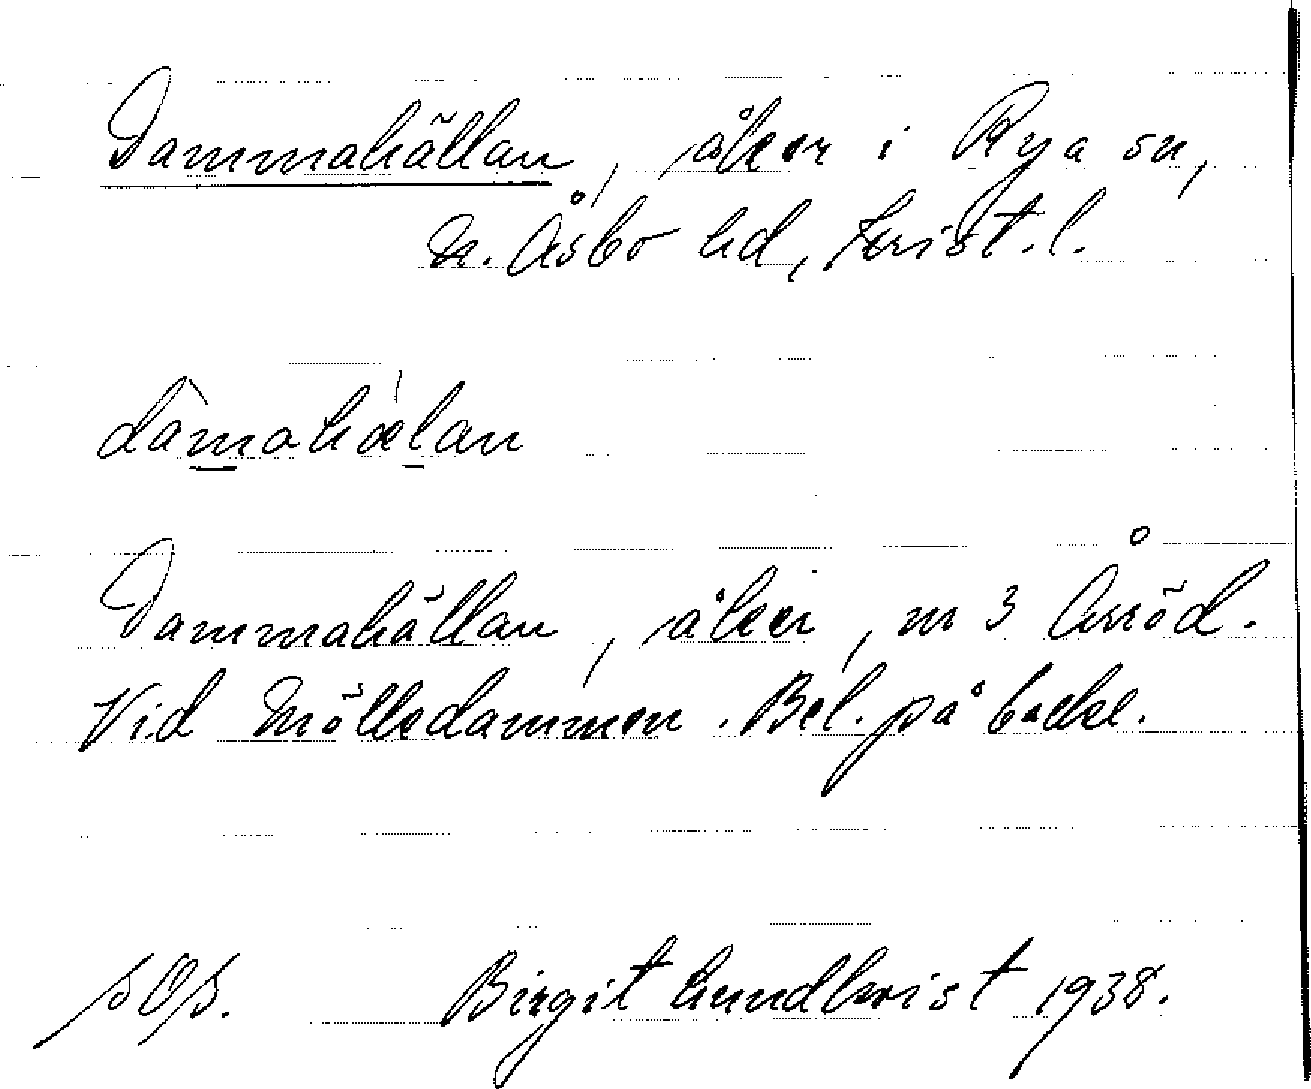 Dammahällan, åker i Rya sn,
N. Åsbo hd, Krist. l.
dàmahælan
Dammahällan, åker, nr 3 Årröd.
Vid Mölledammen. Bel. på backe.
Birgit Lundkvist 1938.